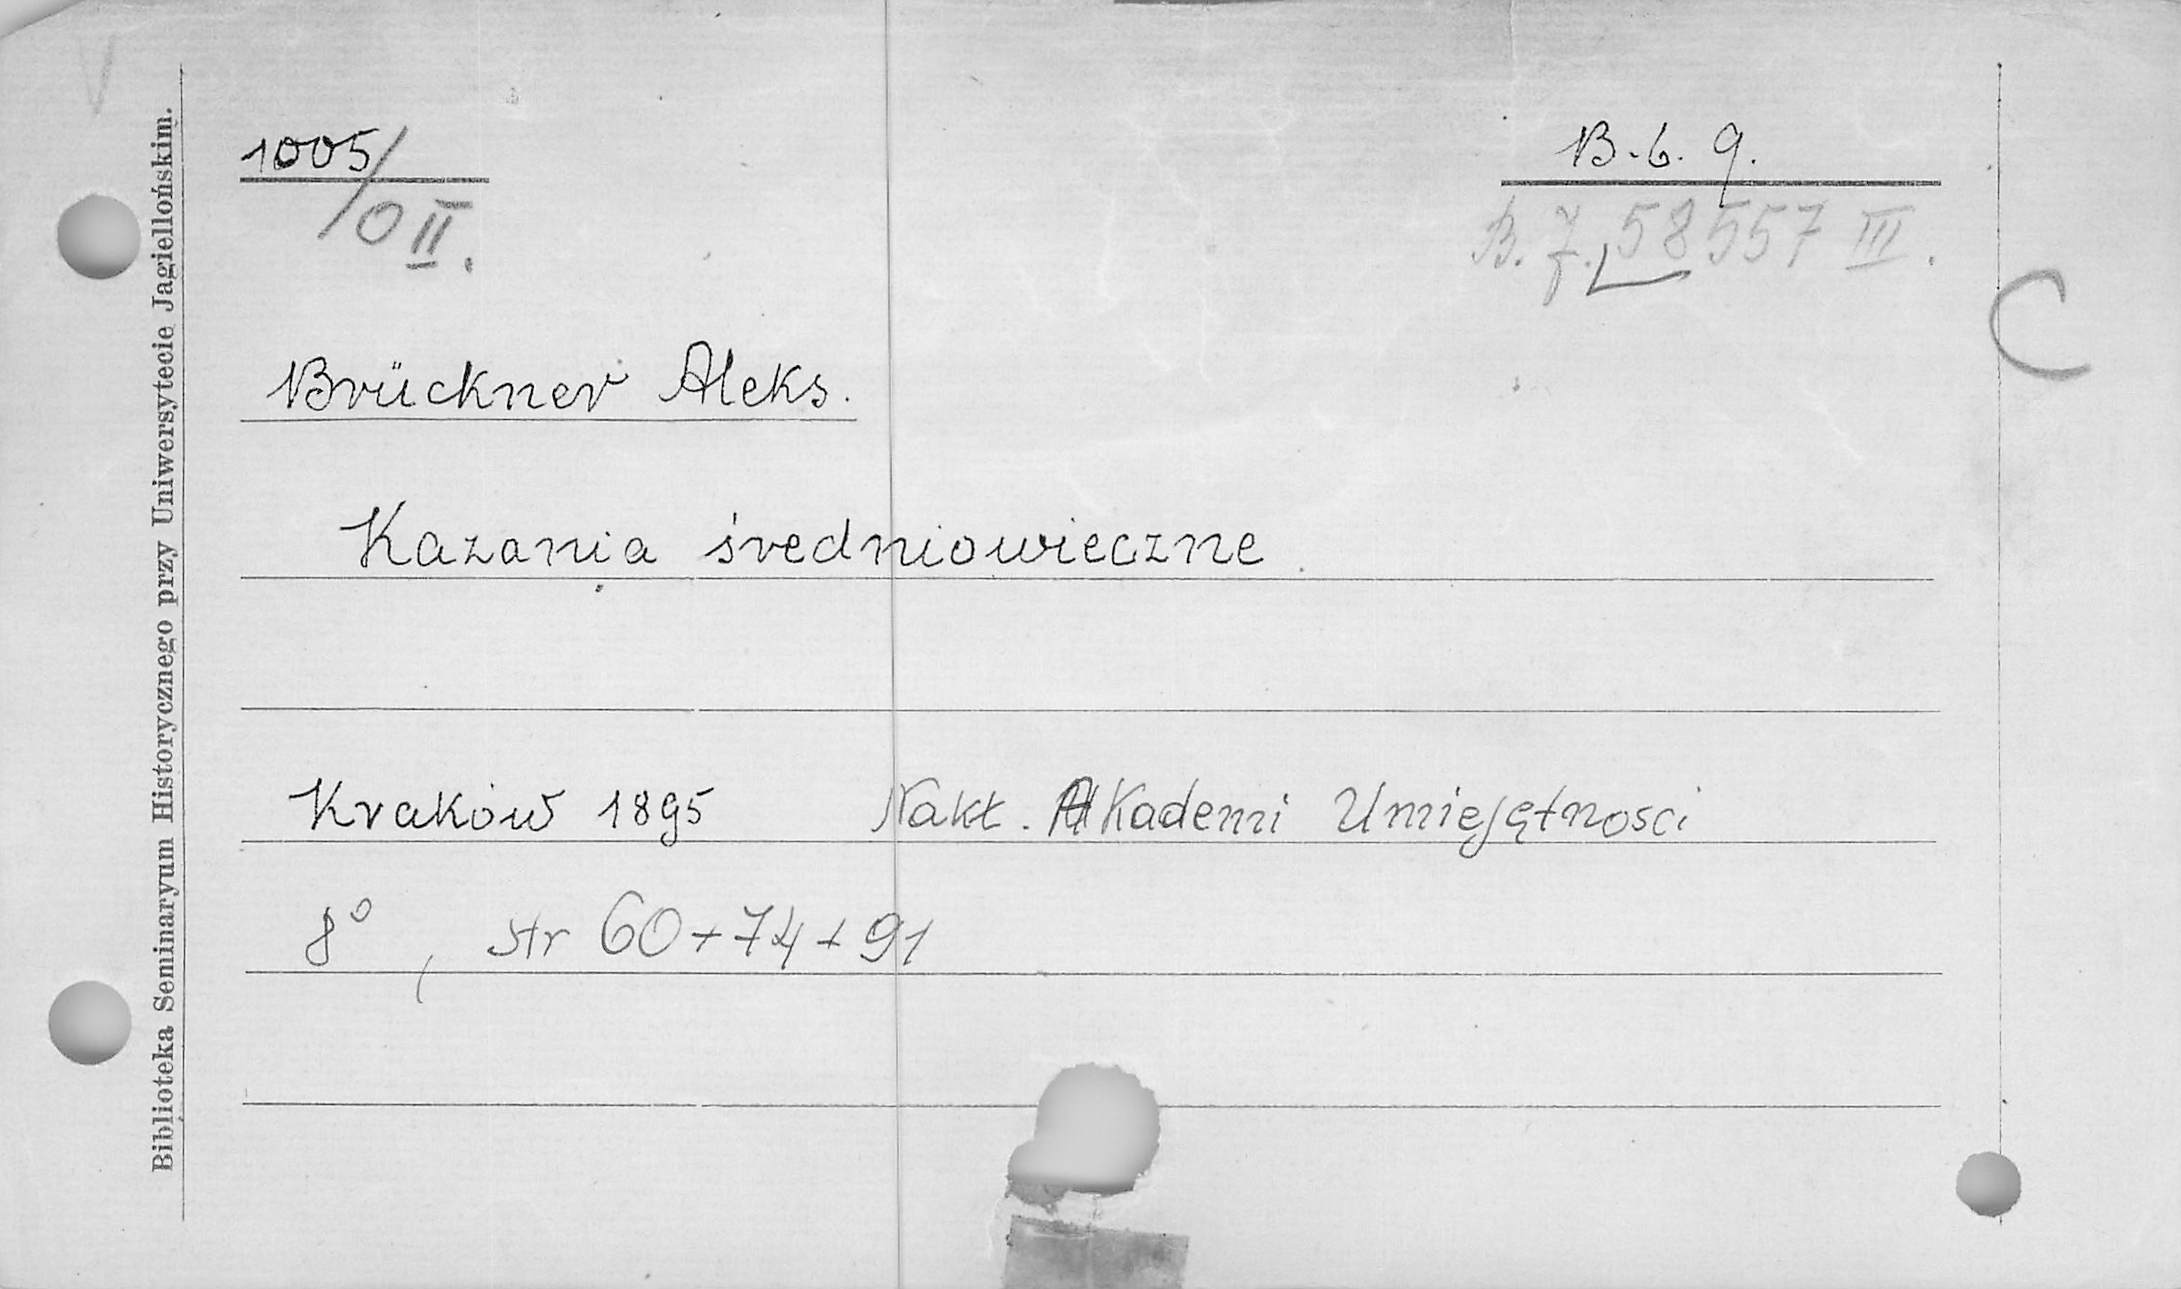 V
1005/OII.
B. b. 9.
B. J. 58557 III.
C
Brückner Aleks.
Kazania średniowieczne
Kraków 1895 Nakł. Akademi Umiejętnosci
8°, str 60+74+91
Biblioteka Seminaryum Historycznego przy Uniwersytecie Jagiellońskim.